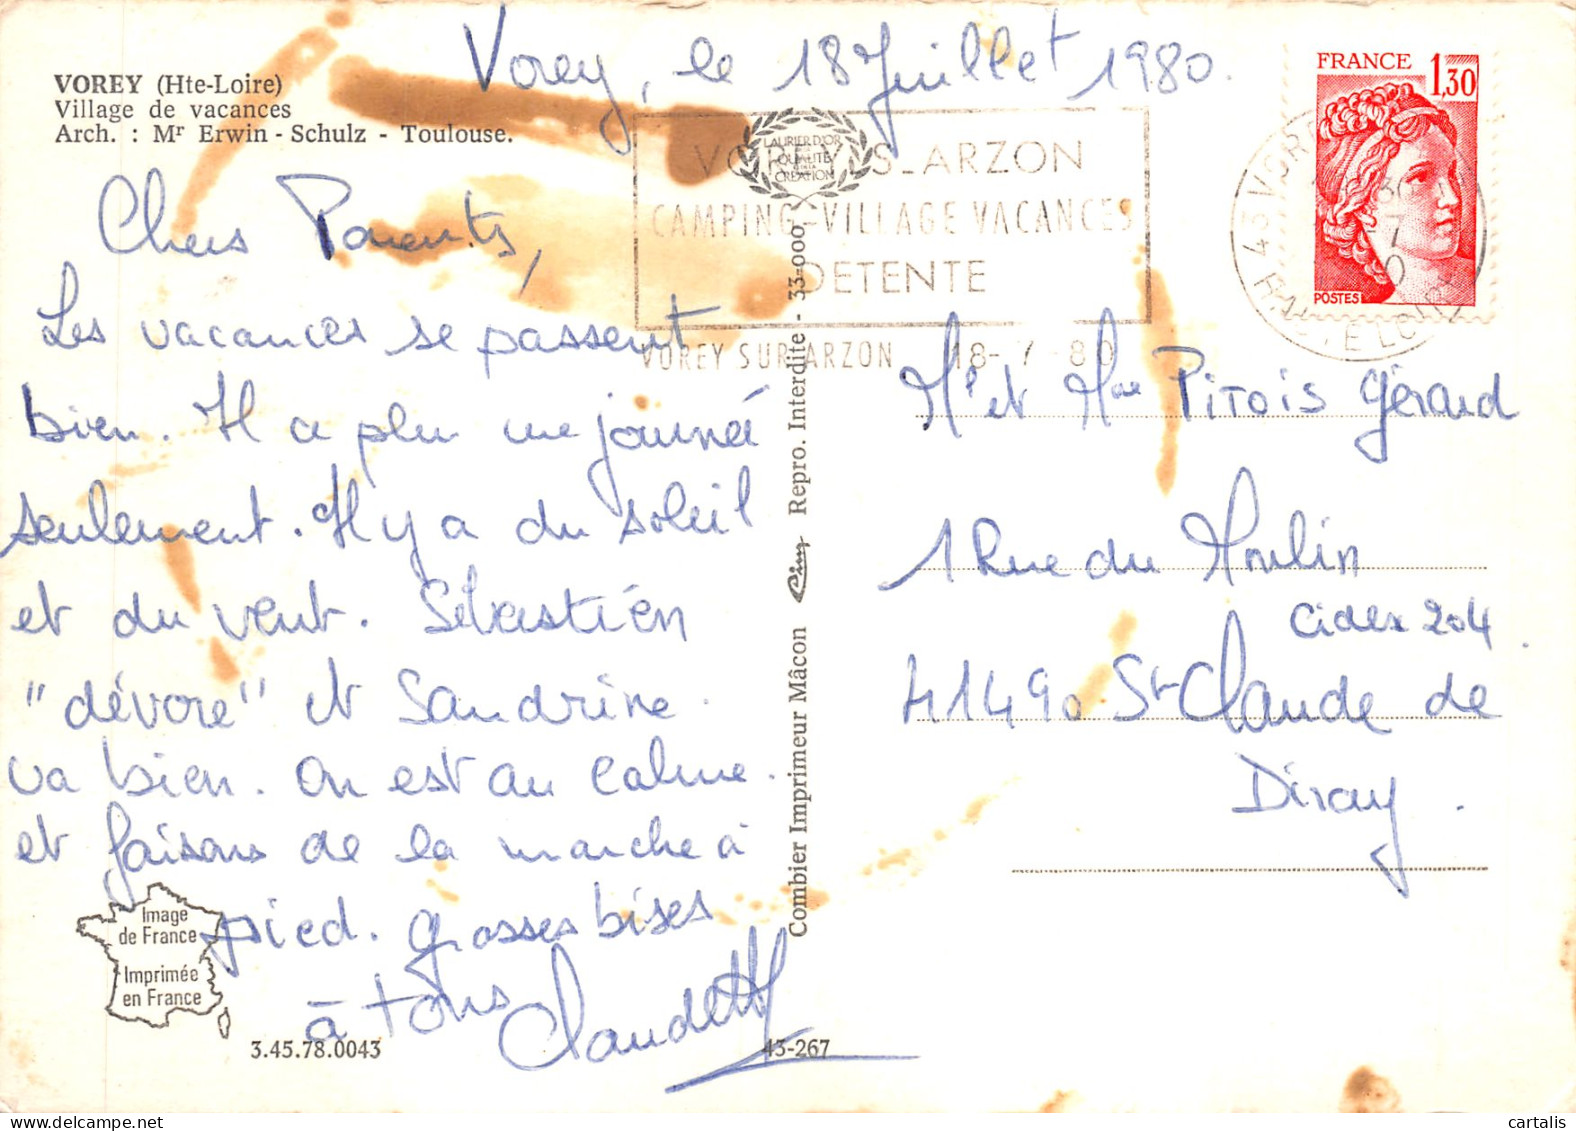 Vorey, le 18 Juillet 1980.
VOREY (Hte-Loire)
Village de vacances
Arch. : Mr Erwin - Schulz - Toulouse.
Chers Parents,
Les vacances se passent
bien. Il a plu une journée
seulement. Il y a du soleil
et du vent. Sébastien
"dévore" et Sandrine
va bien. On est au calme.
et faisons de la marche à
pied. grosses bises
à tous Claudette
Image
de France
Imprimée
en France
3.45.78.0043
43-267
Combier Imprimeur Mâcon Cim Repro. Interdite - 33-000
LAURIER D'OR
QUALITÉ
CRÉATION
VOREY S_ARZON
CAMPING-VILLAGE VACANCES
DETENTE
VOREY SUR ARZON 18-7-80
FRANCE 1,30
POSTES
43 VOREY
Mr et Mme PITOIS Gérard
1 Rue du Moulin
Cidex 204
41490 St-Claude de
Diray.
cartalis